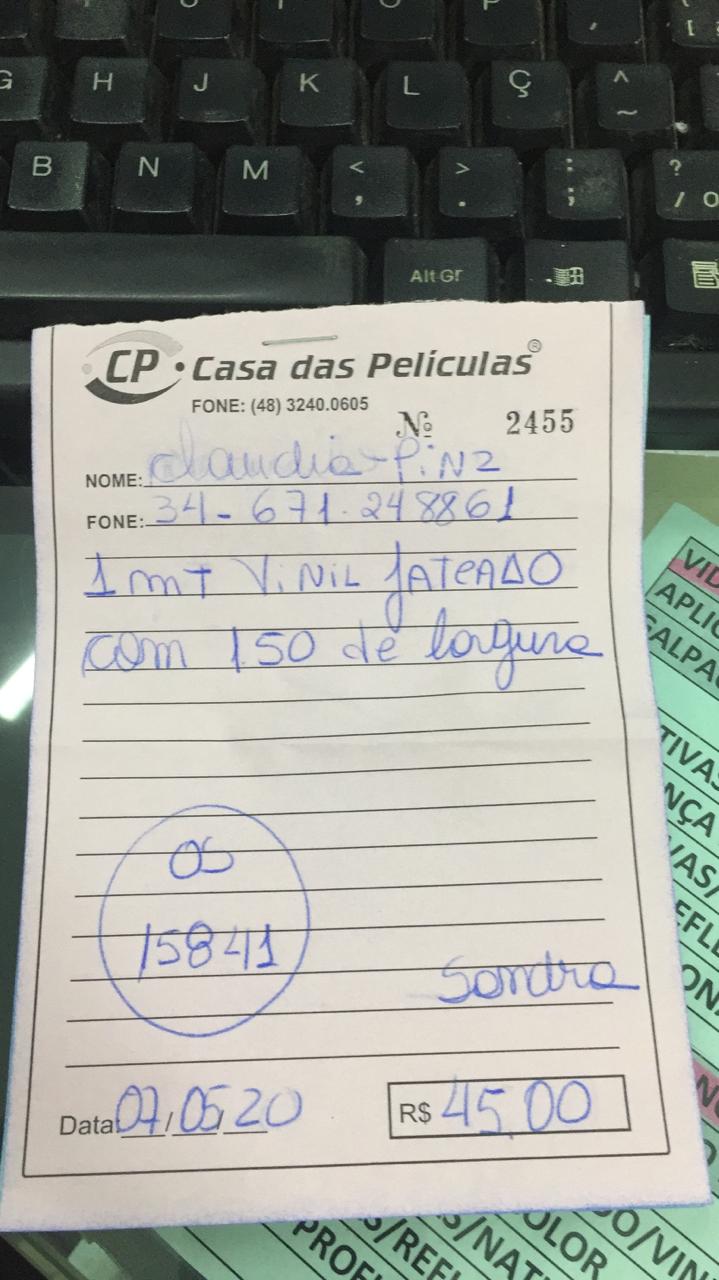 G H J K L Ç ^ ~
B N M < , > . : ; ? /
Alt Gr
CP Casa das Películas ®
FONE: (48) 3240.0605
Nº 2455
NOME: Claudia Pinz
FONE: 34-671.248861
1 mt Vinil jateado
com 1.50 de largura
OS
15841
Sandra
Data 07/05/20
R$ 45,00
VID
APLIC
TIVAS
NÇA
VAS/
OLOR